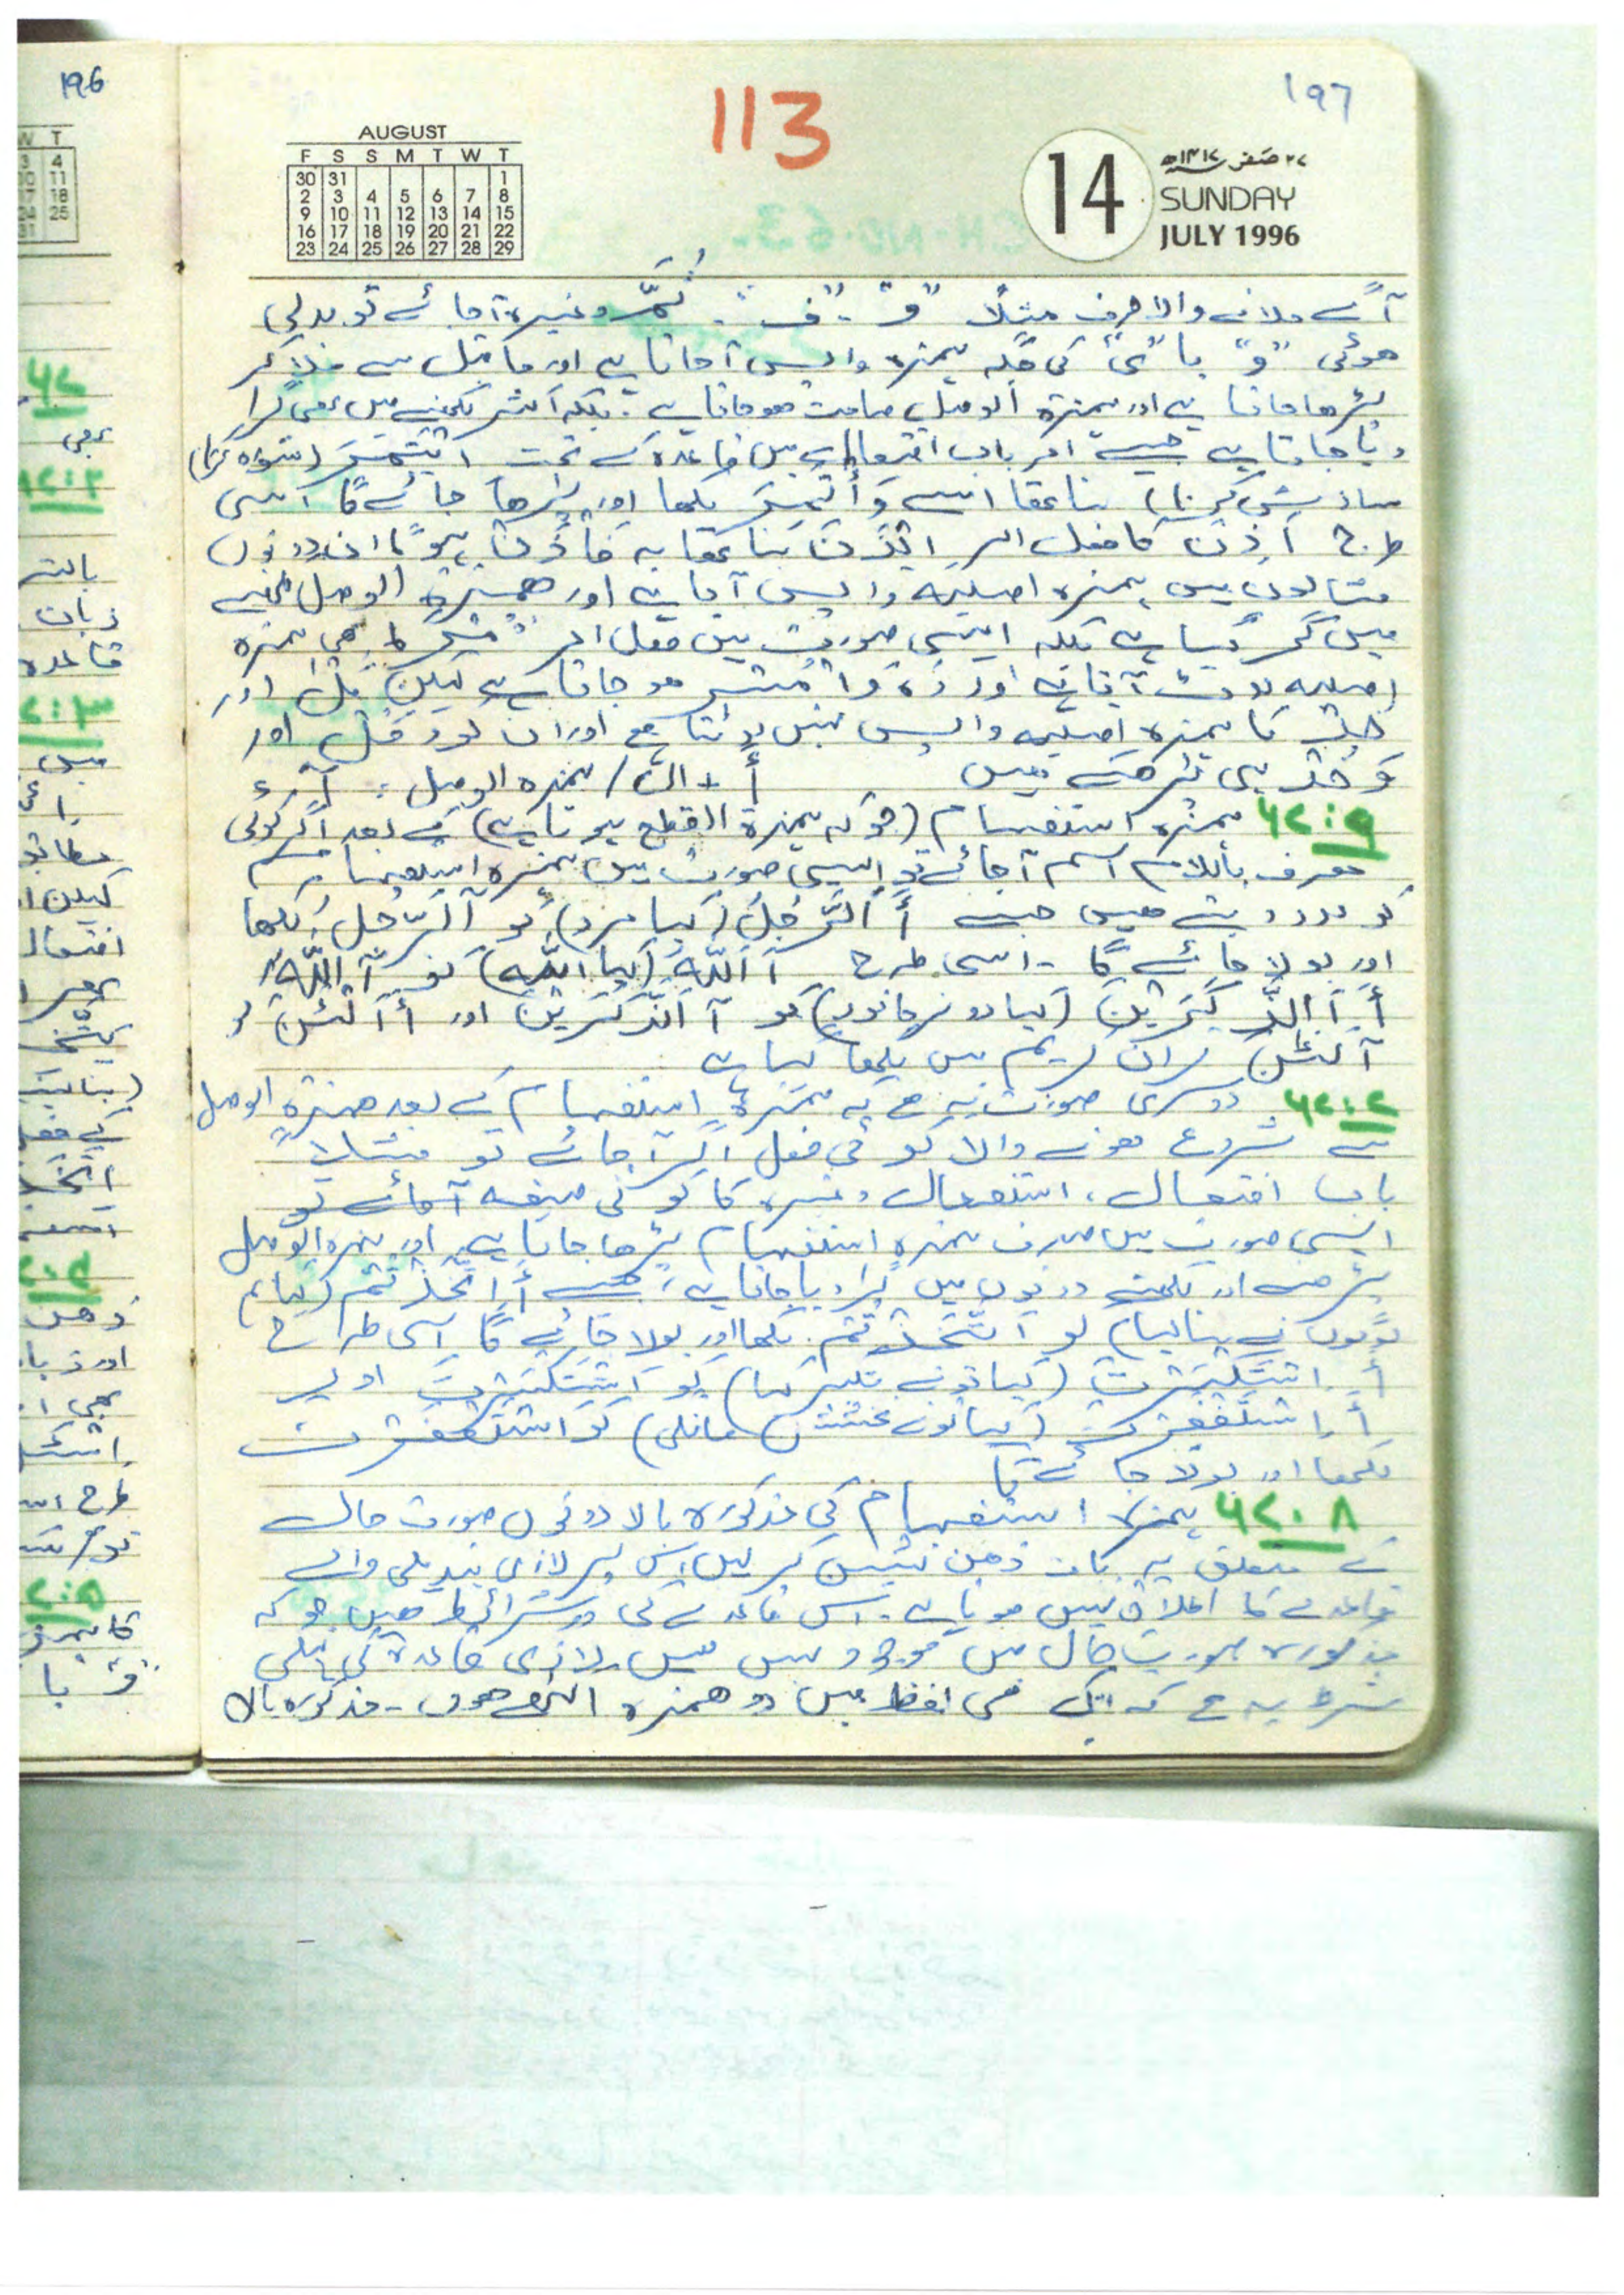 196
197
113
AUGUST
F S S M T W T
30 31 1
2 3 4 5 6 7 8
9 10 11 12 13 14 15
16 17 18 19 20 21 22
23 24 25 26 27 28 29
14
۲۷ صفر ۱۴۱۷ھ
SUNDAY
JULY 1996
آگے ملانے والا حرف مثلاً "وَ"۔ "فَ"۔ ثُمَّ وغیرہ آجائے تو بدلی
ھوئی "و" یا "ی" کی جگہ ہمزہ واپس آجاتا ہے اور ماقبل سے ملا کر
پڑھا جاتا ہے اور ہمزۃ الوصل صامت ھو جاتا ہے۔ بلکہ اکثر لکھنے میں بھی گرا
دیا جاتا ہے جیسے امر باب افتعال میں قاعدہ کے تحت اِیْتَمِرْ (مشورہ کرنا)
سازش کرنا) بنا تھا اسے وَأْتَمِرْ لکھا اور پڑھا جائے گا اسی
طرح اَذِنَ کا فعل امر اِیْذَنْ بنا تھا یہ فَأْذَنْ ہو گا ان دونوں
مثالوں میں ہمزہ اصلیہ واپس آیا ہے اور ھمزۃ الوصل لکھنے
میں گر گیا ہے بلکہ ایسی صورت میں فعل امر کا بھی ہمزہ
اصلیہ لوٹ آتا ہے اور وَأْمُرْ ھو جاتا ہے لیکن کُلْ اور
خُذْ کا ہمزہ اصلیہ واپس نہیں لوٹتا ہے اور ان کو وَکُلْ اور
وَخُذْ ہی پڑھتے ھیں أَ + ال / ہمزہ الوصل = آ
۶۲:۶ ہمزہ استفہام (جو کہ ہمزۃ القطع ہوتا ہے) کے بعد اگر کوئی
معرف باللام اسم آجائے تو ایسی صورت میں ہمزہ استفہام
کو مد دیتے ھیں جیسے أَ اَلرَّجُلُ (کیا مرد) کو آلرَّجُلُ لکھا
اور بولا جائے گا۔ اسی طرح أَ اَللّٰہُ (کیا اللہ) کو آللّٰہُ
أَ اَلذَّکَرَیْنِ (کیا دو نر جانور) کو آلذَّکَرَیْنِ اور أَ اَلْئٰنَ کو
آلْئٰنَ قرآن کریم میں لکھا گیا ہے
۶۲:۷ دوسری صورت یہ ہے کہ ہمزہ استفہام کے بعد ھمزۃ الوصل
سے شروع ھونے والا کوئی فعل اگر آجائے تو مثلاً
باب افتعال، استفعال وغیرہ کا کوئی صیغہ آجائے تو
ایسی صورت میں صرف ہمزہ استفہام پڑھا جاتا ہے اور ہمزہ الوصل
پڑھنے اور لکھنے دونوں میں گرا دیا جاتا ہے، جیسے أَ اِتَّخَذْتُمْ (کیا تم
لوگوں نے بنا لیا) کو اَتَّخَذْتُمْ لکھا اور بولا جائے گا اسی طرح
أَ اِسْتَکْبَرْتَ (کیا تو نے تکبر کیا) کو اَسْتَکْبَرْتَ اور
أَ اِسْتَغْفَرْتَ (کیا تو نے بخشش مانگی) کو اَسْتَغْفَرْتَ
لکھا اور بولا جائے گا
۶۲:۸ ہمزہ استفہام کی مذکورہ بالا دونوں صورت حال
کے متعلق یہ بات ذھن نشیں کر لیں اس پر لازمی تبدیلی والے
قاعدے کا اطلاق نہیں ھوتا ہے۔ اس قاعدے کی دو شرائط ھیں جو کہ
مذکورہ صورت حال میں موجود نہیں ھیں۔ لازمی قاعدہ کی پہلی
شرط یہ ہے کہ ایک ھی لفظ میں دو ھمزہ اکٹھے ھوں۔ مذکورہ بالا